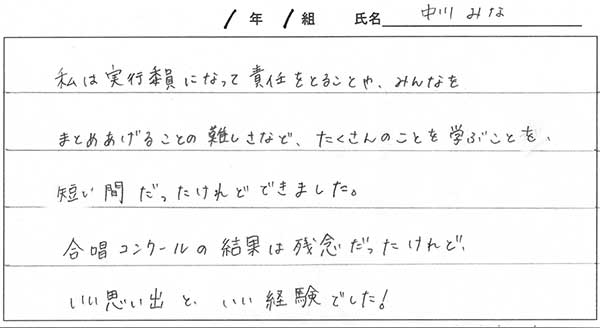 1年 1組 氏名 中川 みな
私は実行委員になって責任をとることや、みんなを
まとめあげることの難しさなど、たくさんのことを学ぶことを、
短い間だったけれどできました。
合唱コンクールの結果は残念だったけれど、
いい思い出と、いい経験でした!